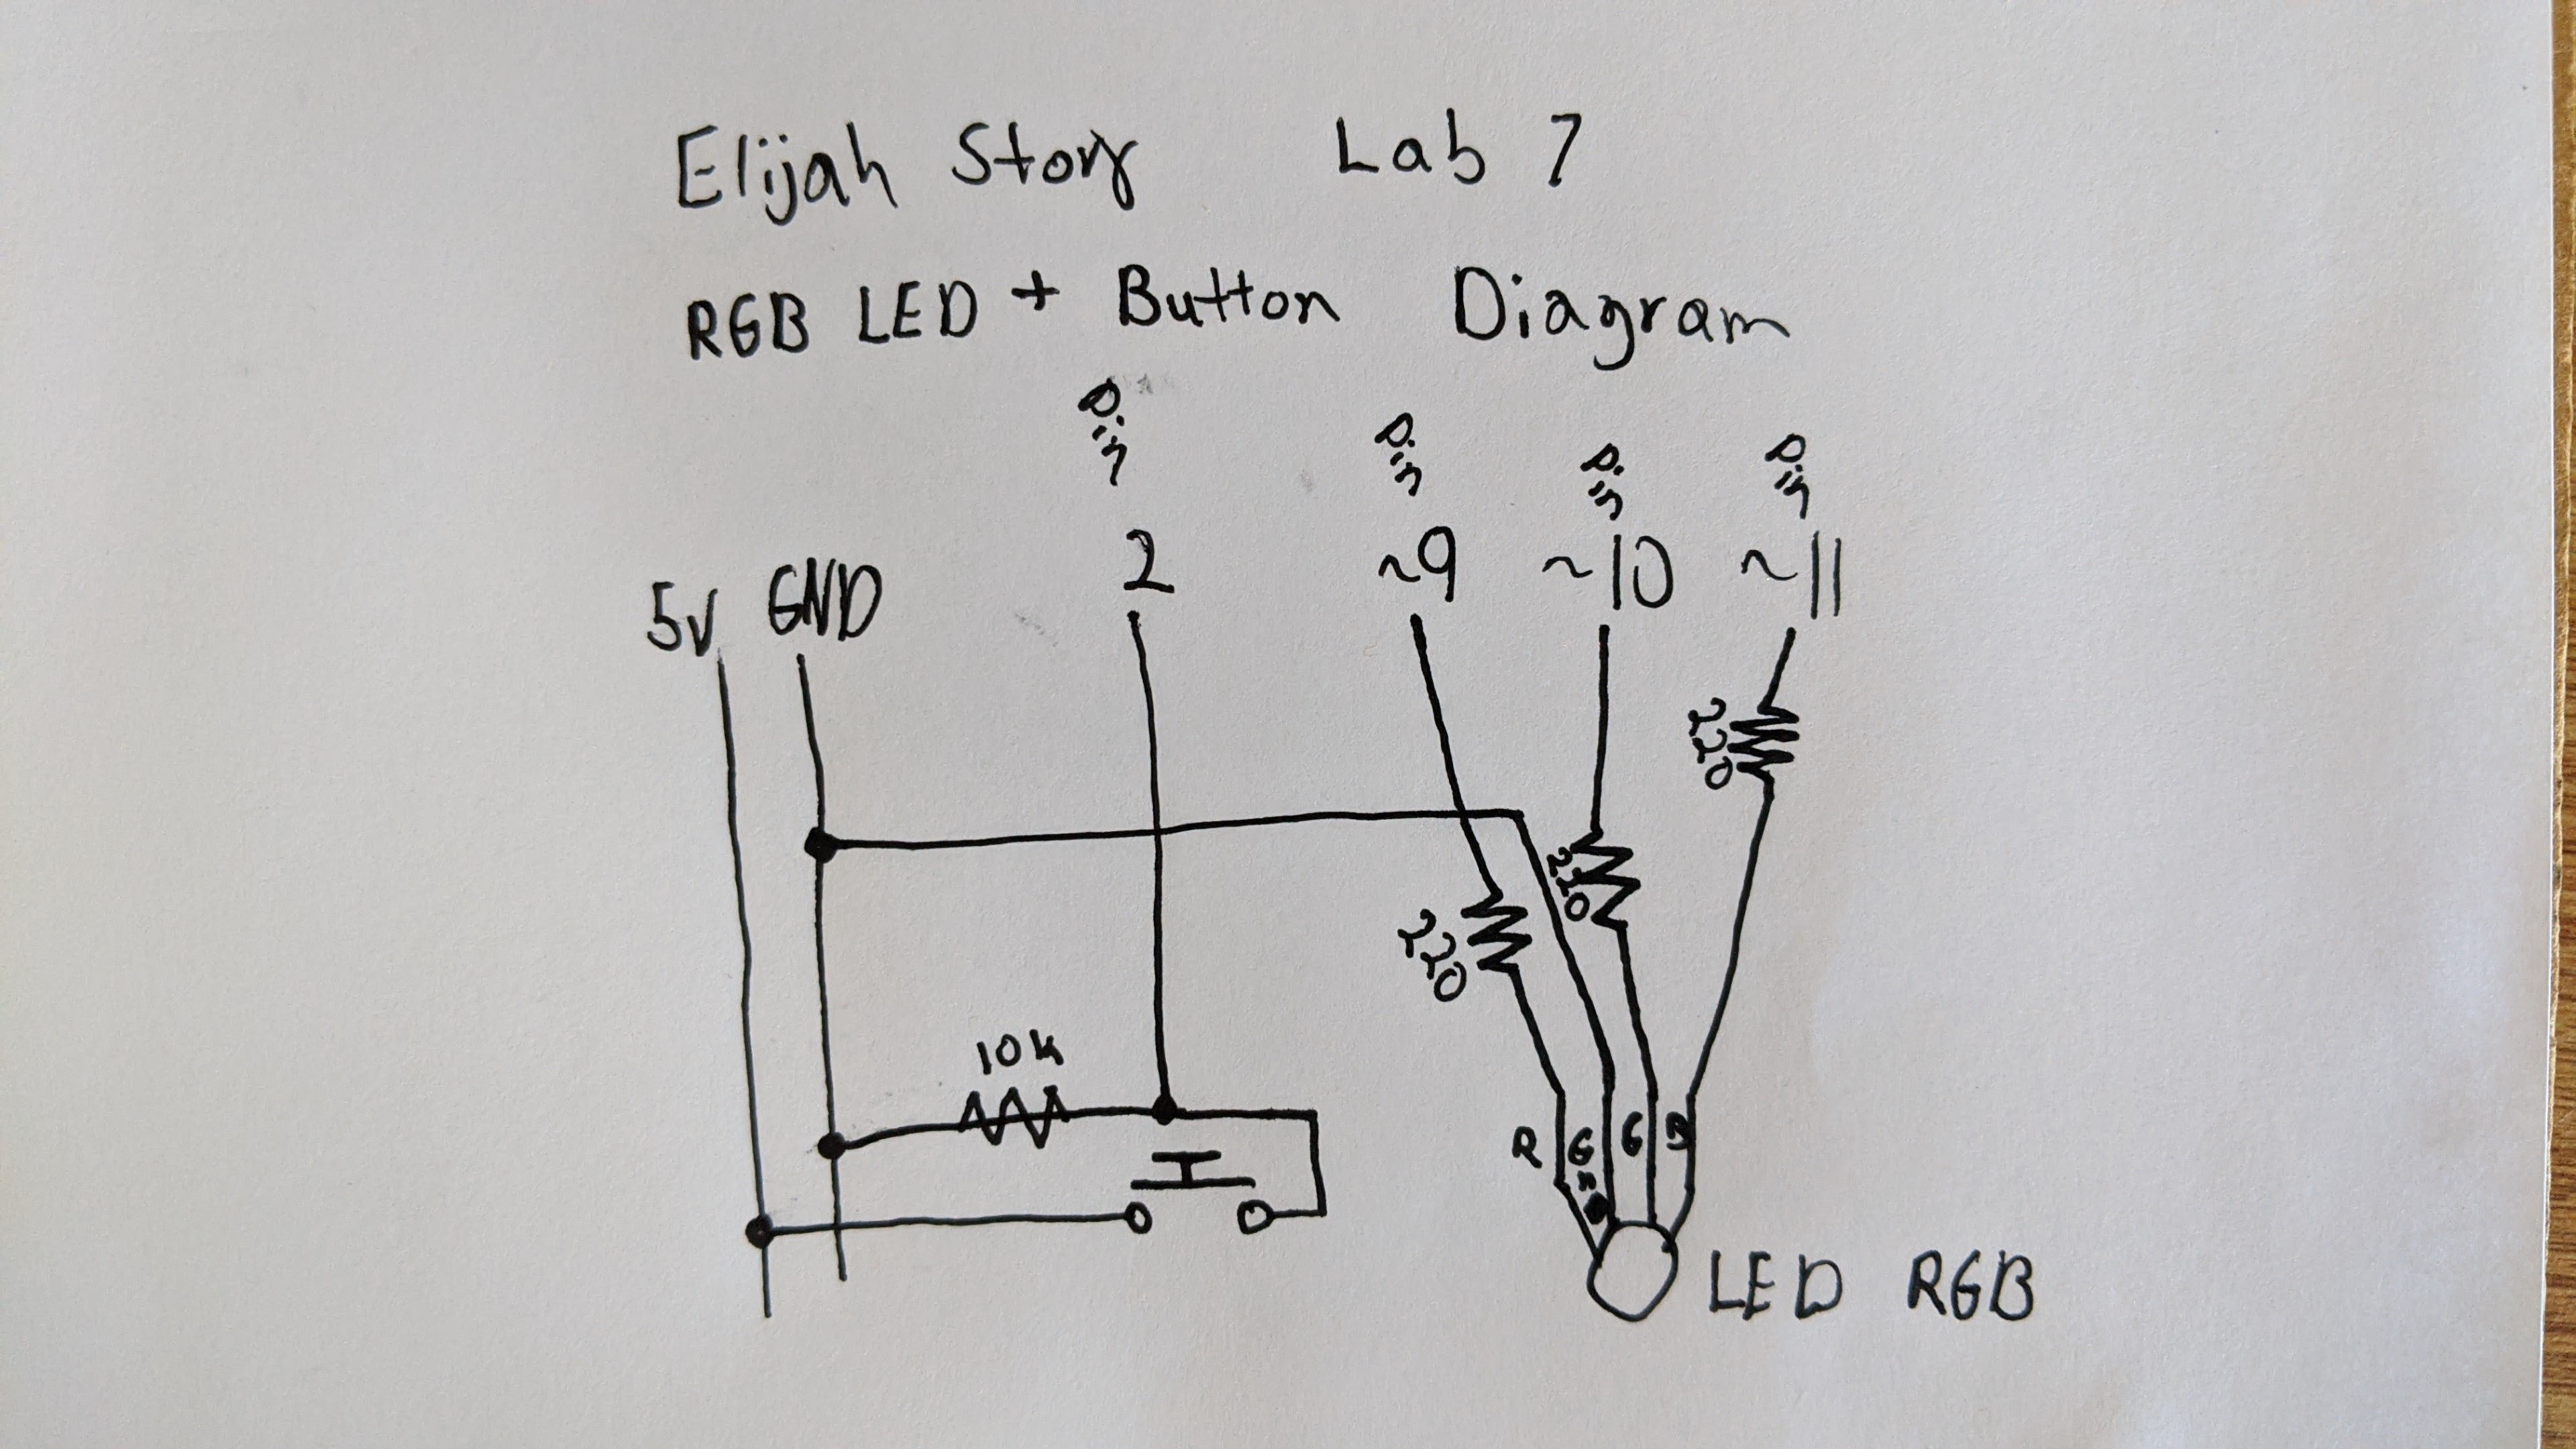 Elijah Story Lab 7
RGB LED + Button Diagram
Pin Pin Pin Pin
5V GND 2 ~9 ~10 ~11
220
220
220
10k
R G G B
LED RGB